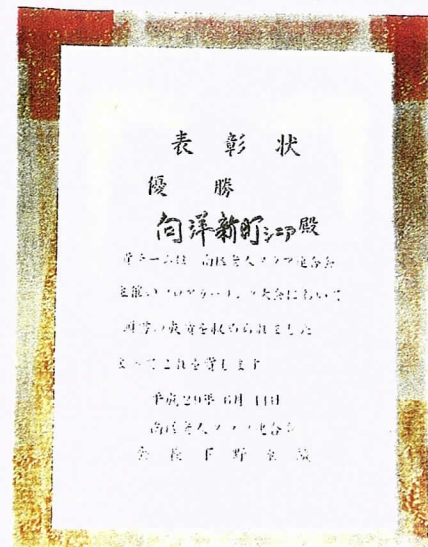 表彰状
優勝
向洋新町シニア殿
貴チームは 南区老人クラブ連合会
主催の
の成績を収められました
よってこれを賞します
平成29年6月14日
南区老人クラブ連合会
会長